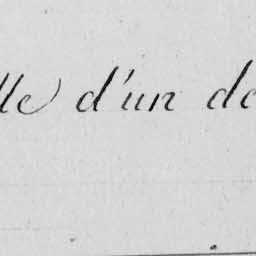 lle d'un de